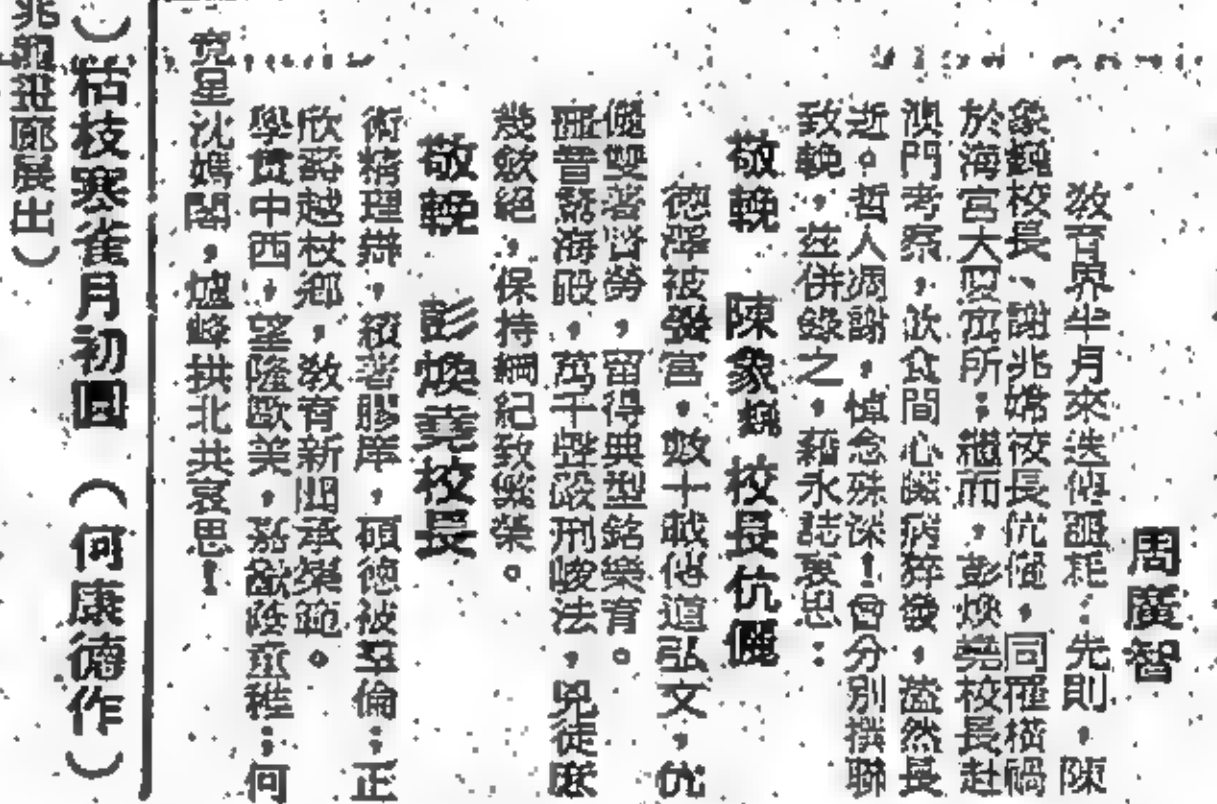 周廣智
教育界半月來迭傳噩耗：先則，陳
象巍校長、謝兆嫦校長伉儷，同罹橫禍
於海宮大廈寓所；繼而，彭煥堯校長赴
澳門考察，飲食間心臟病猝發，溘然長
逝。哲人凋謝，悼念殊深！曾分別撰聯
致輓，茲併錄之，藉永誌哀思：
敬輓　陳象巍校長伉儷
德澤被黌宮，數十載傳道弘文，伉
儷雙著賢勞，留得典型銘樂育。
音海　，萬千　　刑峻法，兇徒庶
幾斂絕，保持綱紀致繁榮。
敬輓　彭煥堯校長
術精理辯，績著膠庠，碩德被羣倫；正
欣蔣越杖鄉，教育新　承榘範。
學貫中西，望隆歐美，嘉猷蔭童稚；何
竟星沈　閣，爐峰拱北共哀思！
）枯枝寒雀月初圓　（何康德作）
兆　　廊展出）